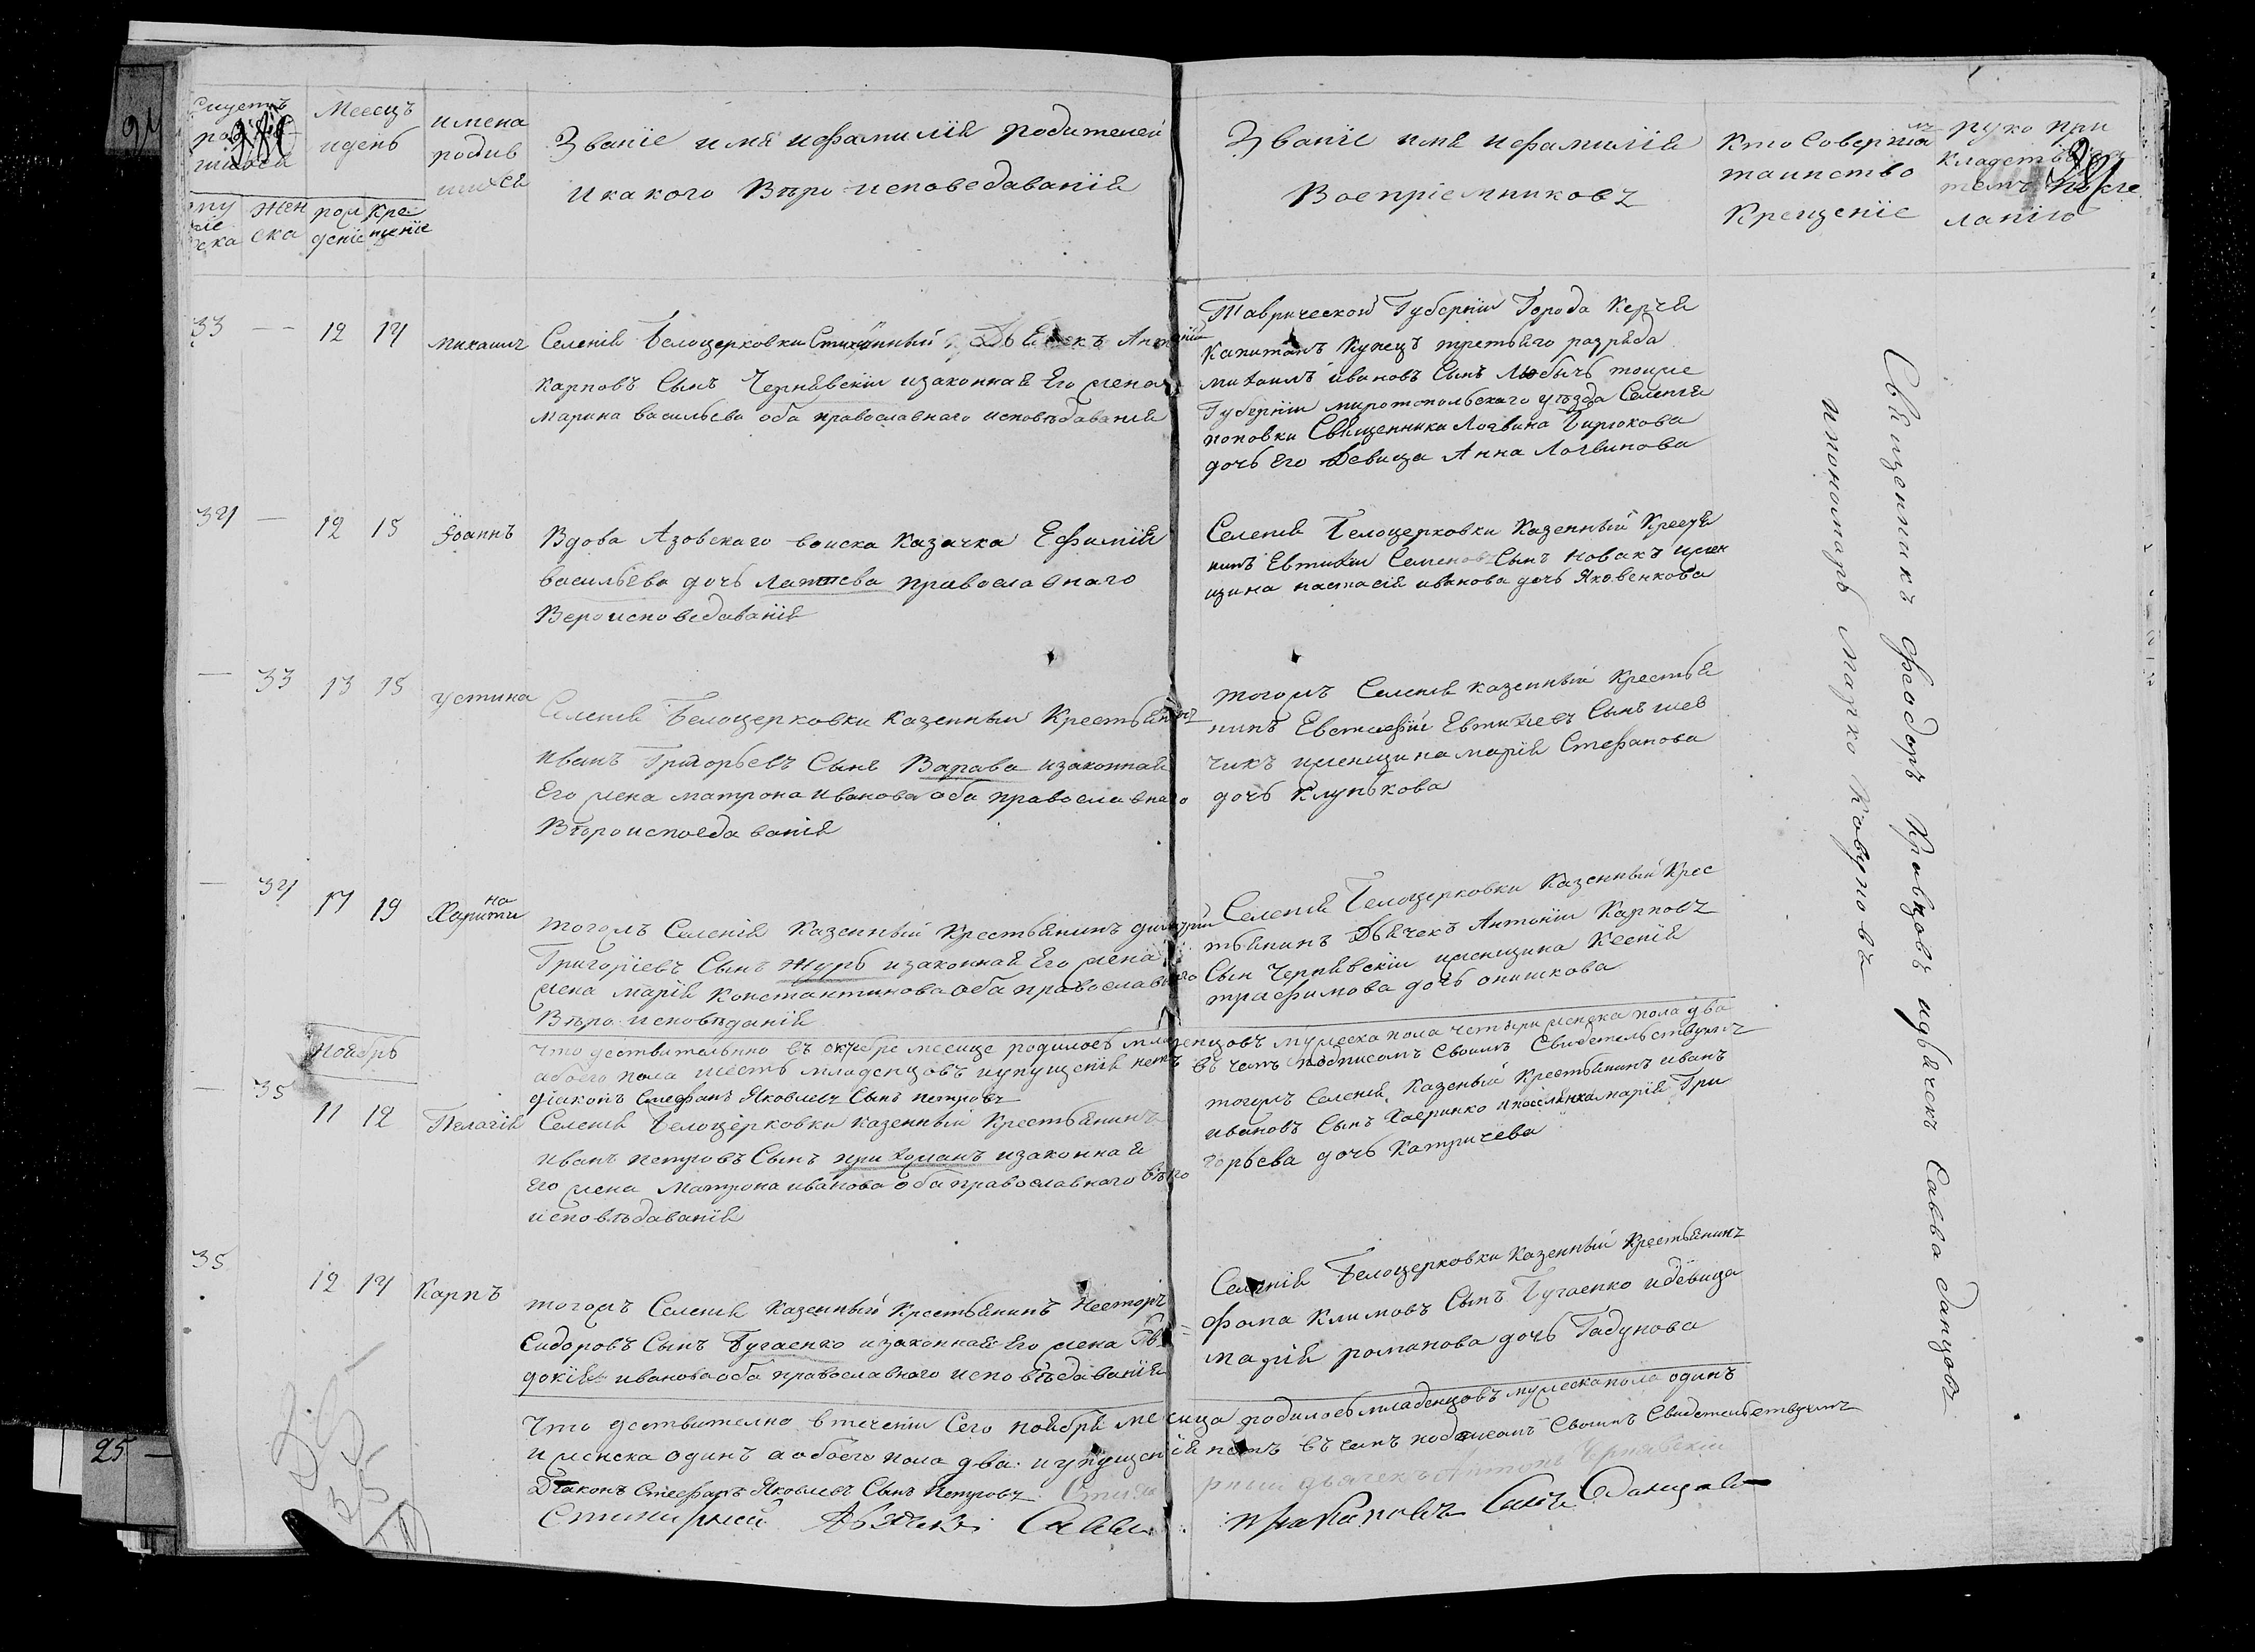 94
Счетъ
280
Месецъ
и день
имена
родив
шихся
Званіе имя и фамилія родителей
и какого Веро исповедаванія
Жен
ска
рож
деніе
кре
щеніе
Званіе имя и фамилія
Воспріемниковъ
Кто Совершалъ
таинство
Крещеніе
руко при
281
ланію
33 — — 12 14 михаилъ
Селенія Белоцерковки Стихарный Дьячекъ Антоній
Карповъ Сынъ Чернявскій изаконная Его жена
Марина васильева оба православнаго исповѣдаванія
Таврической Губерніи Города Керчи
Капитанъ Купецъ третьяго разряда
михаилъ ивановъ Сынъ тойже
Губерніи уѣзда Селенія
поповки Священника Логвина Бирюкова
дочь Его Девица Анна Логвинова
34 — 12 15 Іоаннъ
Вдова Азовскаго воиска Казачка Ефимія
васильева дочь православнаго
Вероисповедаванія
Селенія Белоцерковки Казенный Крестья
нинъ Евтихіи Семеновъ Сынъ Новакъ ижен
щина настасія иванова дочь Яковенкова
— 33 13 15 устина
Селенія Белоцерковки Казенный Крестьянинъ
иванъ Григорьевъ Сынъ Варава изаконная
Его жена матрона иванова оба православнаго
Вѣроисповедаванія
тогожъ Селенія казенный крестья
нинъ Евстафій Евтихіевъ Сынъ шев
чикъ иженщина марія Стефанова
дочь
— 34 17 19 Харитина
тогожъ Селенія Казенный Крестьянинъ димитрій
Григоріевъ Сынъ Журъ изаконная Его жена
жена марія Константинова оба православнаго
Вѣро исповѣданія
Селенія Белоцерковки Казенный Крес
тьянинъ Дьячекъ Антоніи Карповъ
Сын Чернявскіи иженщина Ксенія
трафимова дочь онишкова
что дествительнно въ октебре месеце родилось младенцовъ мужеска пола четыри женска пола два
абоего пола шесть младенцовъ иупущенія нетъ въ чемъ подписомъ своимъ Свидетельствуемъ
діаконъ Стефанъ Яковлевъ Сынъ петровъ
Ноябрь
— 35 11 12 Пелагія
Селенія Белоцерковки казенный Крестьянинъ
иванъ петровъ Сынъ изаконная
его жена матрона иванова оба православнаго вѣро
исповѣдаванія
тогожъ Селенія Казеный Крестьянинъ иванъ
ивановъ Сынъ марія Гри
горьева дочь Катричева
35 12 14 Карпъ
тогожъ Селенія казенный крестьянинъ Несторъ
Сидоровъ Сынъ Бугаенко изаконная Его жена Ев
докія иванова оба православнаго исповѣдаванія
Селенія Белоцерковки Казенный Крестьянинъ
фома Климовъ Сынъ Бугаенко идевица
марія романова дочь Гадунова
Что дествително втеченіи Сего ноября месяца родилось младенцовъ мужеска пола одинъ
и женска одинъ а обоего пола два иупущенія нетъ въ чемъ подписомъ Своимъ Свидетельствуемъ
Діаконъ Стефанъ Яковлевъ Сынъ Петровъ
дьячекъ Антонъ Чернявскіи
Стихирный Дьячекъ Савва Данцовъ
Священникъ Феодоръ Кравцовъ идьячекъ Савва данцовъ
ипономарь марко Ковуновъ
35
35
25